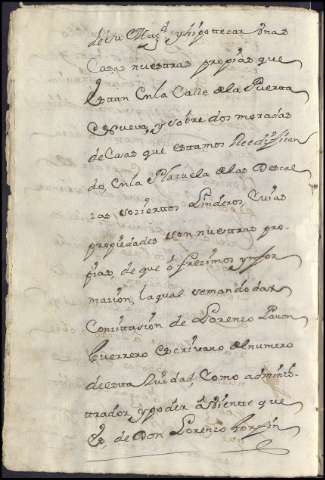 dicha Mag.d y hipotecar Unas
Casas nuestras propias que
estan Enla Calle dela Puerta
Nueva, y sobre dos moradas
de Casas que estamos Reedifican
do, Enla Plazuela delas Descal
zas so ciertos Linderos, Cuias
propiedades son nuestras pro
pias, de que ofrezimos ynfor
mazion, la qual se mando dar
Con citasion de Lorenzo Pavon
Guerrero escrivano del numero
de esta Ciudad, Como adminis
trador, y poder aviente que
Es, de Don Lorenzo